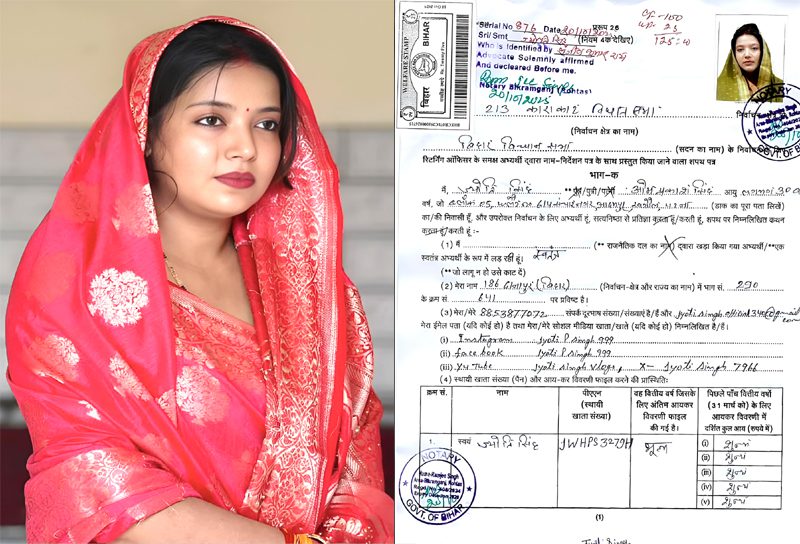 Serial No 876 Date 20/10/2025
प्ररूप 26
Sri/Smt ज्योति सिंह
(नियम 4क देखिए)
Who is Identified by
Advocate Solemnly affirmed
And declared Before me.
Notary Bikramganj (Rohtas)
20/10/2025
WELFARE STAMP
BIHAR
बिहार
213 काराकाट विधान सभा
(निर्वाचन क्षेत्र का नाम)
बिहार विधान सभा (सदन का नाम) के निर्वाचन के लिए
रिटर्निंग ऑफिसर के समक्ष अभ्यर्थी द्वारा नाम-निर्देशन पत्र के साथ प्रस्तुत किया जाने वाला शपथ पत्र
भाग-क
मैं, ज्योति सिंह **पुत्र/पुत्री/ आयु
वर्ष, जो (डाक का पूरा पता लिखें)
का/की निवासी हूँ, और उपरोक्त निर्वाचन के लिए अभ्यर्थी हूँ, सत्यनिष्ठा से प्रतिज्ञा करता हूँ/करती हूँ, शपथ पर निम्नलिखित कथन
करता हूँ/करती हूं :-
(1) मैं (** राजनैतिक दल का नाम) द्वारा खड़ा किया गया अभ्यर्थी/**एक
स्वतंत्र
स्वतंत्र अभ्यर्थी के रूप में लड़ रही हूं।
(**जो लागू न हो उसे काट दें)
(2) मेरा नाम 186 दानापुर (बिहार) (निर्वाचन-क्षेत्र और राज्य का नाम) में भाग सं. 290
के क्रम सं. 641 पर प्रविष्ट है।
(3) मेरा/मेरे 8853877072 संपर्क दूरभाष संख्या/संख्याएं है/हैं और
मेरा ईमेल पता (यदि कोई हो) है तथा मेरा/मेरे सोशल मीडिया खाता/खाते (यदि कोई हो) निम्नलिखित है/हैं।
(i) Instagram Jyoti P Singh 999
(ii) face book Jyoti P Singh 999
(iii) Yu Tube Jyoti Singh Vlogs, X- Jyoti Singh 7966
(4) स्थायी खाता संख्या (पैन) और आय-कर विवरणी फाइल करने की प्रास्थितिः
क्रम सं. नाम पीएएन (स्थायी खाता संख्या) वह वित्तीय वर्ष जिसके लिए अंतिम आयकर विवरणी फाइल की गई है। पिछले पाँच वित्तीय वर्षों (31 मार्च को) के लिए आयकर विवरणी में दर्शित कुल आय (रुपये में)
1. स्वयं ज्योति सिंह JWHPS3279H शून्य (i) शून्य
(ii) शून्य
(iii) शून्य
(iv) शून्य
(v) शून्य
NOTARY
GOVT. OF BIHAR
NOTARY
GOVT. OF BIHAR
(1)